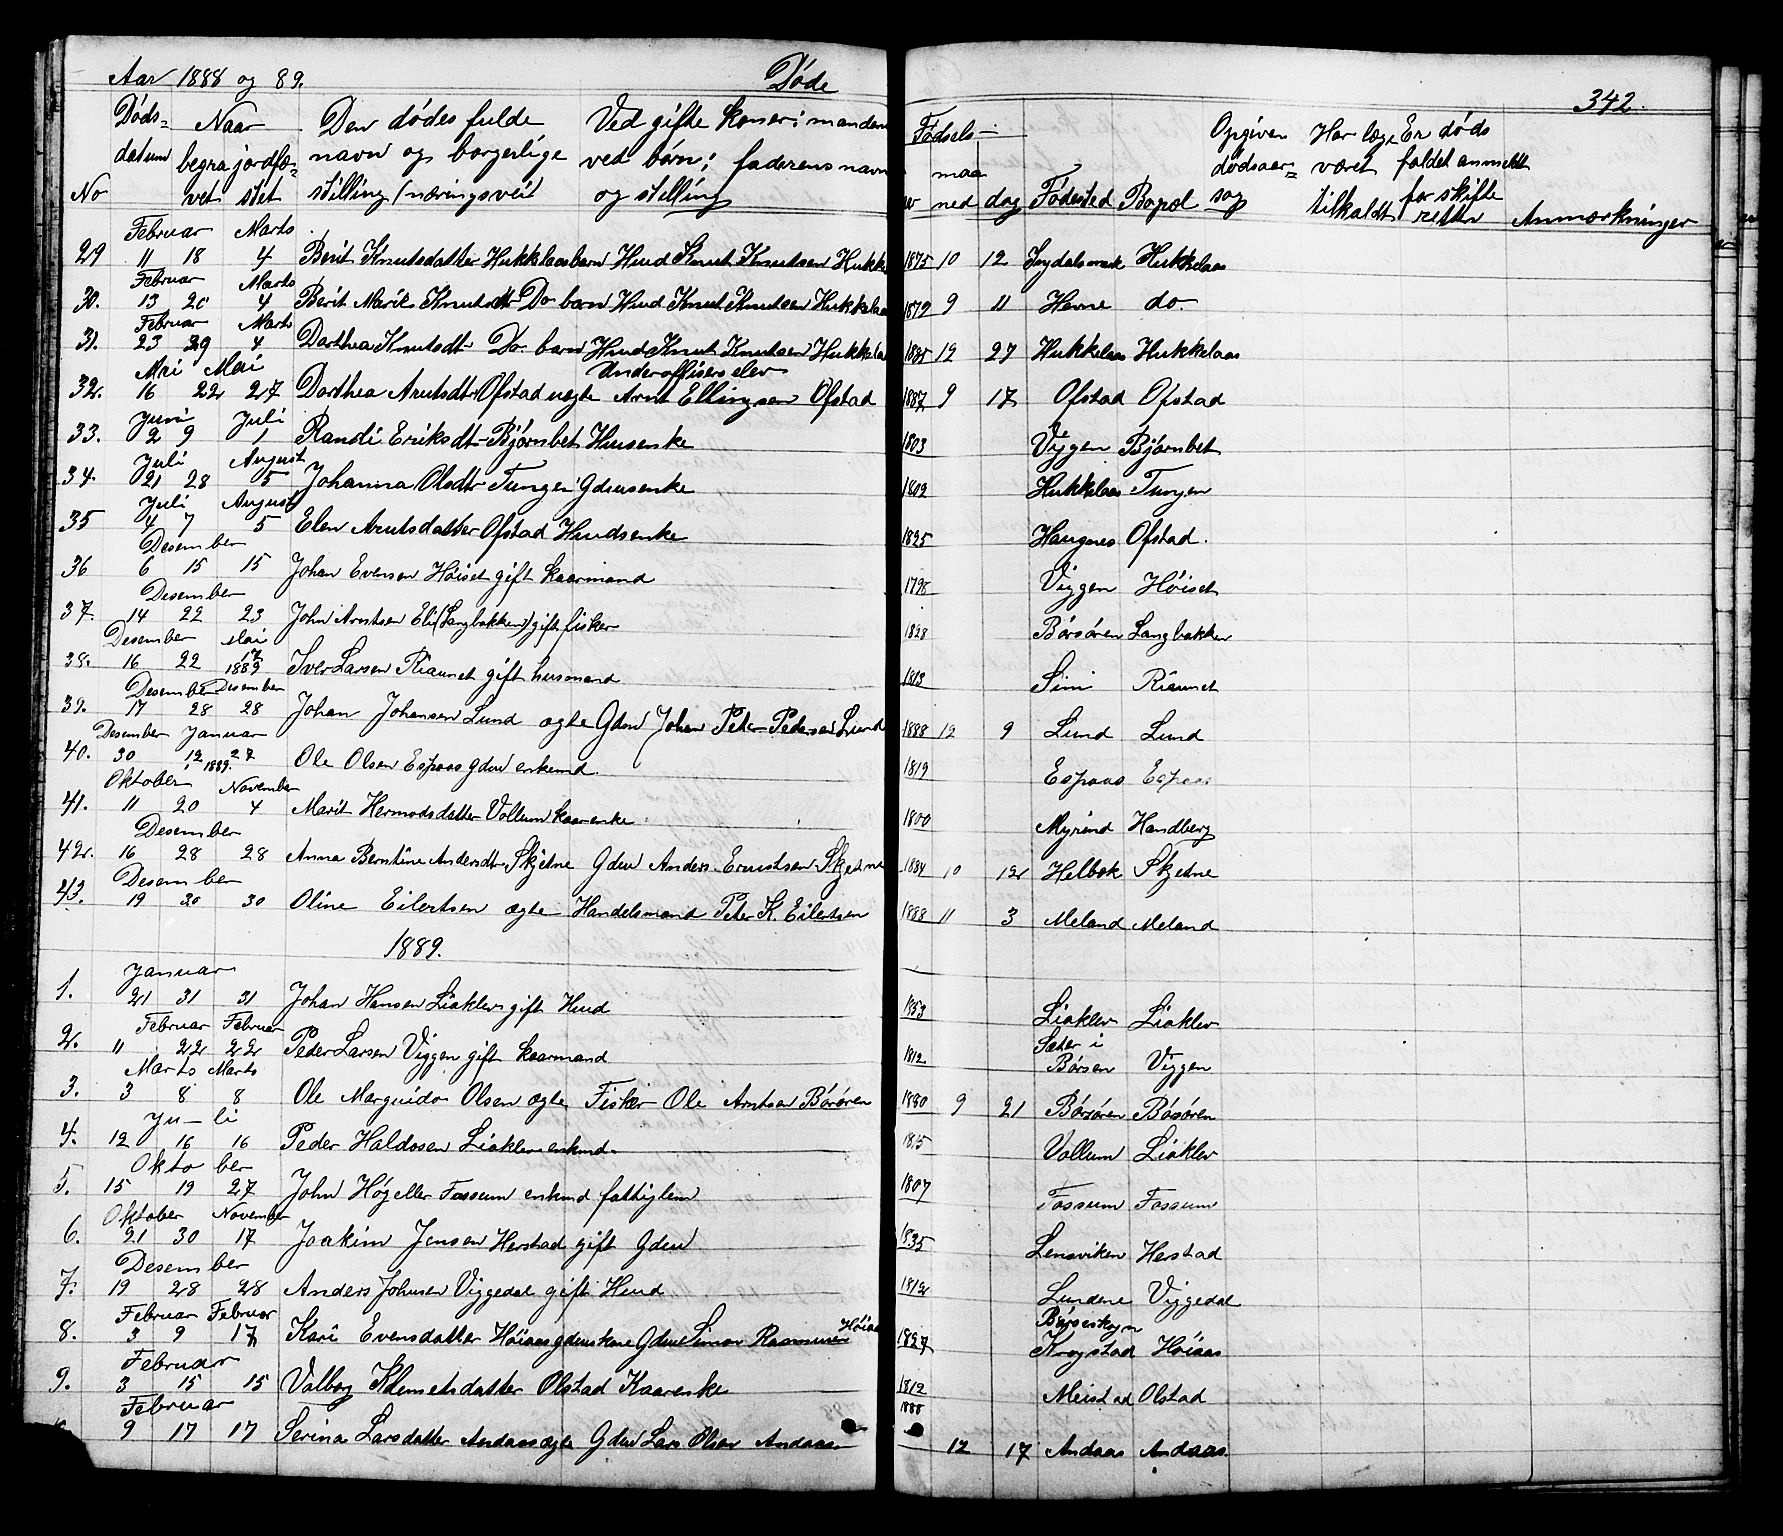 Aar 1888 og 89. Døde 342.
Døds= datum Naar begra vet jordfæ= stet
No
Den dødes fulde navn og borgerlige stilling (næringsveit
Ved gifte Koner: mandens ved børn; faderens navn og stilling
Fødsels- maa ned dag Fødested Bopæl
Opgiven dødsaar= sag
Har læge været tilkaldt
Er døds faldet anmeldt for skifte retten
Anmærkninger
Februar Marts
29 11 18 4 Berit Knutsdatter Hukklaas barn Hmd Knut Knutsen Hukk 1875 10 12 Hukkelaas
Februar Marts
30. 13 20 4 Berit Marie Knutsdt Do barn Hmd Knut Knutsen Hukkelaa 1879 9 11 Hevne do.
Februar Marts
31. 23 29 4 Dorthea Knutsdt Do. barn Hmd Knut Knutsen Hukkela 1885 12 27 Hukkelaas Hukkelaas
Mai Mai Underoffisers elev
32. 16 22 27 Dorthea Arntsdt Ofstad ægte Arnt Ellingsen Ofstad 1887 9 17 Ofstad Ofstad
Juni Juli
33. 2 9 1 Randi Eriksdt Bjørnbet Husenke 1803 Viggen Bjørnbet
Juli August
34. 21 28 5 Johanna Olsdt Tungen Gdmsenke 1809 Hukkelaas Tungen
Juli August
35 4 7 5 Elen Arntsdatter Ofstad Hmdsenke 1825 Haugnes Ofstad.
Desember
36 6 15 15 Johan Evensen Høiset gift kaarmand 1798 Viggen Høiset
Desember
37. 14 22 23 John Arntsen Eli (Langbakken) gift fisker 1828 Børsøren Langbakken
Desember Mai
38. 16 22 17 1889 Iver Larsen Riaunet gift husmand 1813 Simi Riaunet
Desember Desember
39. 17 28 28 Johan Johansen Lund ægte Gdm Johan Peter Pedersen Lund 1888 12 9 Lund Lund
Desember Januar
40. 30 12 27 1889. Ole Olsen Espaas gdm enkemd. 1819 Espaas Espaas
Oktober November
41. 11 20 4 Marit Hermodsdatter Vollum kaarenke 1800 Myrind Handberg
Desember
42. 16 28 28 Anna Berntine Andersdt Skjetne Gdm Anders Erntsen Skjetne 1884 10 12 Helbok Skjetne
Desember
43. 19 30 30 Oline Eilertsen ægte Handelsmand Peter K. Eilertsen 1888 11 3 Meland Meland
1889.
Januar
1. 21 31 31 Johan Hansen Liaklev gift Hmd 1853 Liaklev Liaklev
Februar Februar
2. 11 22 22 Peder Larsen Viggen gift kaarmand 1812 Sæter i Børsen Viggen
Marts Marts
3. 3 8 8 Ole Marguido Olsen ægte Fisker Ole Arntsen Børøren 1880 9 21 Børsøren Børsøren
Ju - li
4. 12 16 16 Peder Haldosen Liaklev enkmd. 1815 Vollum Liaklev
Okto ber
5. 15 19 27 John Høgeller Fossum enkmd fattiglem 1807 Fossum Fossum
Oktober November
6. 21 30 17 Joakim Jensen Herstad gift Gdm 1835 Lensviken Herstad
Desember
7. 19 28 28 Anders Johnsen Viggedal gift Hmd 1812 Lundene Viggedal
Februar Februar Børseskogn
8. 3 9 17 Kari Evensdatter Høiaas gdmskone Gdm Simon Rasmusen Høiaas 1827 Krogstad Høiaas
Februar
9. 3 15 15 Valborg Klemetsdatter Olstad Kaarenke 1812 Meistad Olstad
Februar
9 17 17 Serina Larsdatter Andaas ægte Gdm Lars Olsen Andaas 1888 12 17 Andaas Andaas.